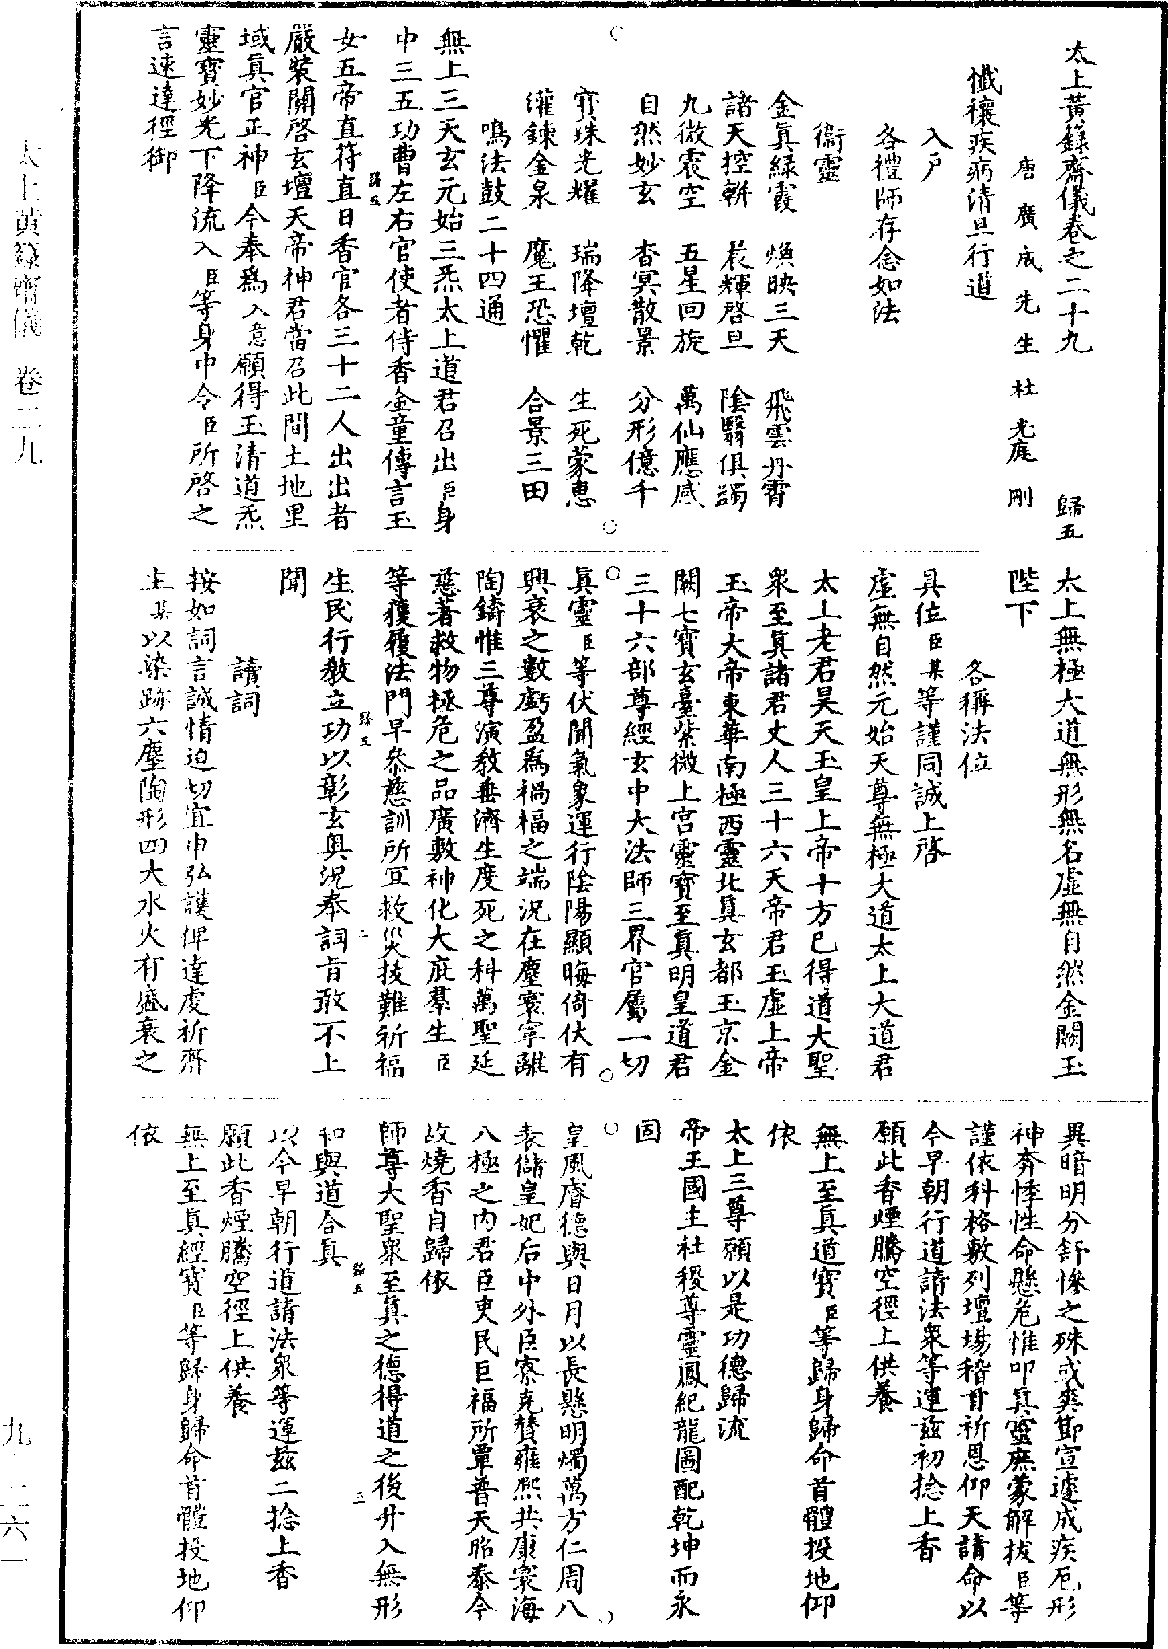 太上黃籙齋儀卷之二十九　歸五
唐廣成先生杜光庭刪
懺禳疾病清旦行道
入戶
各禮師存念如法
衞靈
金眞緑霞　煥映三天　飛雲丹霄
諸天控軿　晨輝啓旦　陰翳俱蠲
九微震空　五星回旋　萬仙應感
自然妙玄　杳冥散景　分形億千
寶珠光耀　瑞降壇乾　生死蒙惠
灌鍊金泉　魔王恐懼　合景三田
鳴法鼓二十四通
無上三天玄元始三炁太上道君召出臣身
中三五功曹左右官使者侍香金童傳言玉
女五帝直符直日香官各三十二人出出者
嚴裝關啓玄壇天帝神君當召此間土地里
域眞官正神臣今奉爲入意願得玉清道炁
靈寶妙光下降流入臣等身中令臣所啓之
言速達徑御
太上無極大道無形無名虛無自然金闕玉
陛下
各稱法位
具位臣某等謹同誠上啓
虛無自然元始天尊無極大道太上大道君
太上老君昊天玉皇上帝十方已得道大聖
衆至眞諸君丈人三十六天帝君玉虛上帝
玉帝大帝東華南極西靈北眞玄都玉京金
闕七寶玄臺紫微上宮靈寶至眞明皇道君
三十六部尊經玄中大法師三界官屬一切
眞靈臣等伏聞氣象運行陰陽顯晦倚伏有
興衰之數虧盈爲禍福之端況在塵寰寧離
陶鑄惟三尊演教垂濟生度死之科萬聖延
慈著救物極危之品廣敷神化大庇羣生臣
等獲履法門早叅慈訓所宜救災拔難祈福
生民行教立功以彰玄奥況奉詞旨敢不上
聞
讀詞
按如詞言誠情迫切宜申弘護俾達虔祈齋
主某以染跡六塵陶形四大水火有盛衰之
異暗明分舒慘之殊或爽節宣遽成疾厄形
神㚏悸性命懸危惟叩眞靈庶蒙解拔臣等
謹依科格敷列壇場稽首祈恩仰天請命以
今早朝行道請法衆等運茲初捻上香
願此香煙騰空徑上供養
無上至眞道寶臣等歸身歸命首體投地仰
依
太上三尊願以是功德歸流
帝王國主社稷尊靈鳳紀龍圖配乾坤而永
固
皇風睿德與日月以長懸明燭萬方仁周八
表儲皇妃后中外臣寮克贊雍熙共康寰海
八極之內君臣吏民巨福所覃普天昭泰今
故燒香自歸依
師尊大聖衆至眞之德得道之後升入無形
和與道合眞
以今早朝行道請法衆等運茲二捻上香
願此香煙騰空徑上供養
無上至眞經寶臣等歸身歸命首體投地仰
依
太上黃籙齋儀　卷二九
九　二六一